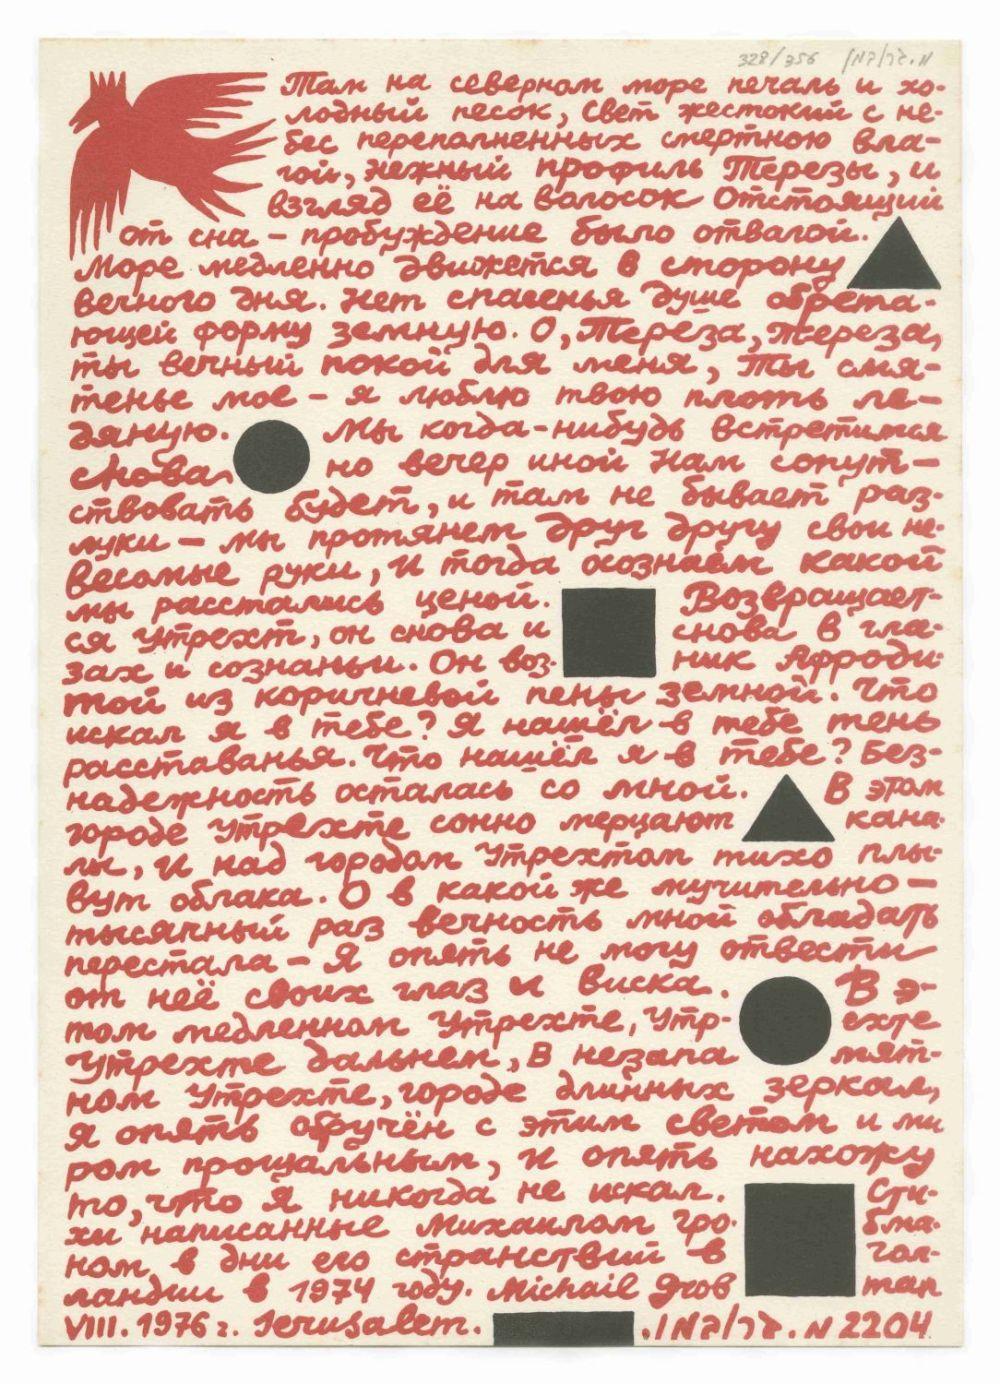 328/356 מ. גרובמן
Там на северном море печаль и хо-
лодный песок, свет жестокий с не-
бес переполненных смертною вла-
гой, нежный профиль Терезы, и
взгляд её на волосок отстоящий
от сна – пробуждение было отвагой.
Море медленно движется в сторону
вечного дня. Нет спасенья душе обрета-
ющей форму земную. О, Тереза, Тереза,
ты вечный покой для меня, ты смя-
тенье мое – я люблю твою плоть ле-
дяную. Мы когда-нибудь встретимся
снова но вечер иной нам сопут-
ствовать будет, и там не бывает раз-
луки – мы протянем друг другу свои не-
весомые руки, и тогда осознаём какой
мы расстались ценой. Возвращает-
ся Утрехт, он снова и снова в гла-
зах и сознаньи. Он воз- ник Афроди-
той из коричневой пены земной. Что
искал я в тебе? Я нашёл в тебе тень
расставанья. Что нашёл я в тебе? Без-
надежность осталась со мной. В этом
городе Утрехте сонно мерцают кана-
лы, и над городом Утрехтом тихо плы-
вут облака. О в какой же мучительно –
тысячный раз вечность мной обладать
перестала – я опять не могу отвести
от неё своих глаз и виска. В э-
том медленном Утрехте, Утр- ехте
Утрехте дальнем, в незапа мят-
ном Утрехте, городе длинных зеркал,
я опять обручён с этим светом и ми
ром прощальным, и опять нахожу
то, что я никогда не искал. Сти-
хи написанные Михаилом Гро- бма-
ном в дни его странствий в Гол-
ландии в 1974 году. Michail Grob man
VIII. 1976 г. Jerusalem. מ. גרובמן. 2204